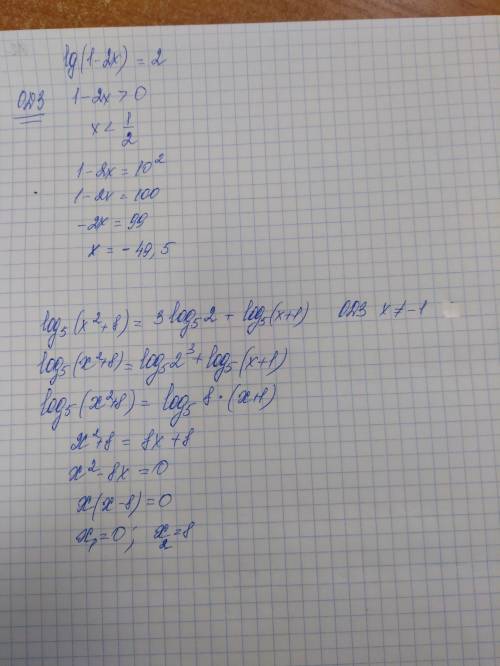 lg(1-2x) = 2
ОДЗ 1-2x > 0
x < 1/2
1-2x = 10²
1-2x = 100
-2x = 99
x = -49,5
log₅(x²+8) = 3log₅2 + log₅(x+1) ОДЗ x ≠ -1
log₅(x²+8) = log₅2³ + log₅(x+1)
log₅(x²+8) = log₅8·(x+1)
x²+8 = 8x+8
x²-8x = 0
x(x-8) = 0
x₁=0; x₂=8